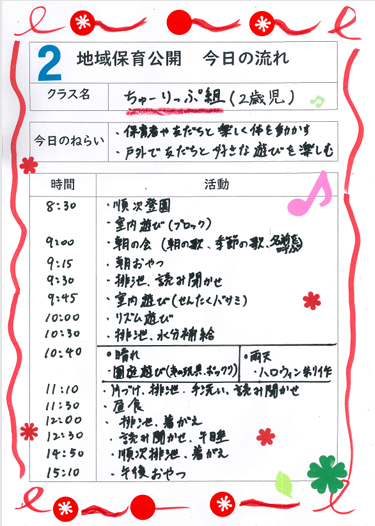 2 地域保育公開 今日の流れ
クラス名 ちゅーりっぷ組(2歳児)
今日のねらい
・保育者や友だちと楽しく体を動かす
・戸外で友だちと好きな遊びを楽しむ
時間 活動
8:30 ・順次登園
・室内遊び(ブロック)
9:00 ・朝の会(朝の歌、季節の歌、
9:15 ・朝おやつ
9:30 ・排泄、読み聞かせ
9:45 ・室内遊び(せんたくバサミ)
10:00 ・リズム遊び
10:30 ・排泄、水分補給
10:40 •晴れ •雨天
・園庭遊び( ・ハロウィン制作
11:10 ・片づけ、排泄、手洗い、読み聞かせ
11:30 ・昼食
12:00 ・排泄、着がえ
12:30 ・読み聞かせ、午睡
14:50 ・順次排泄、着がえ
15:10 ・午後おやつ